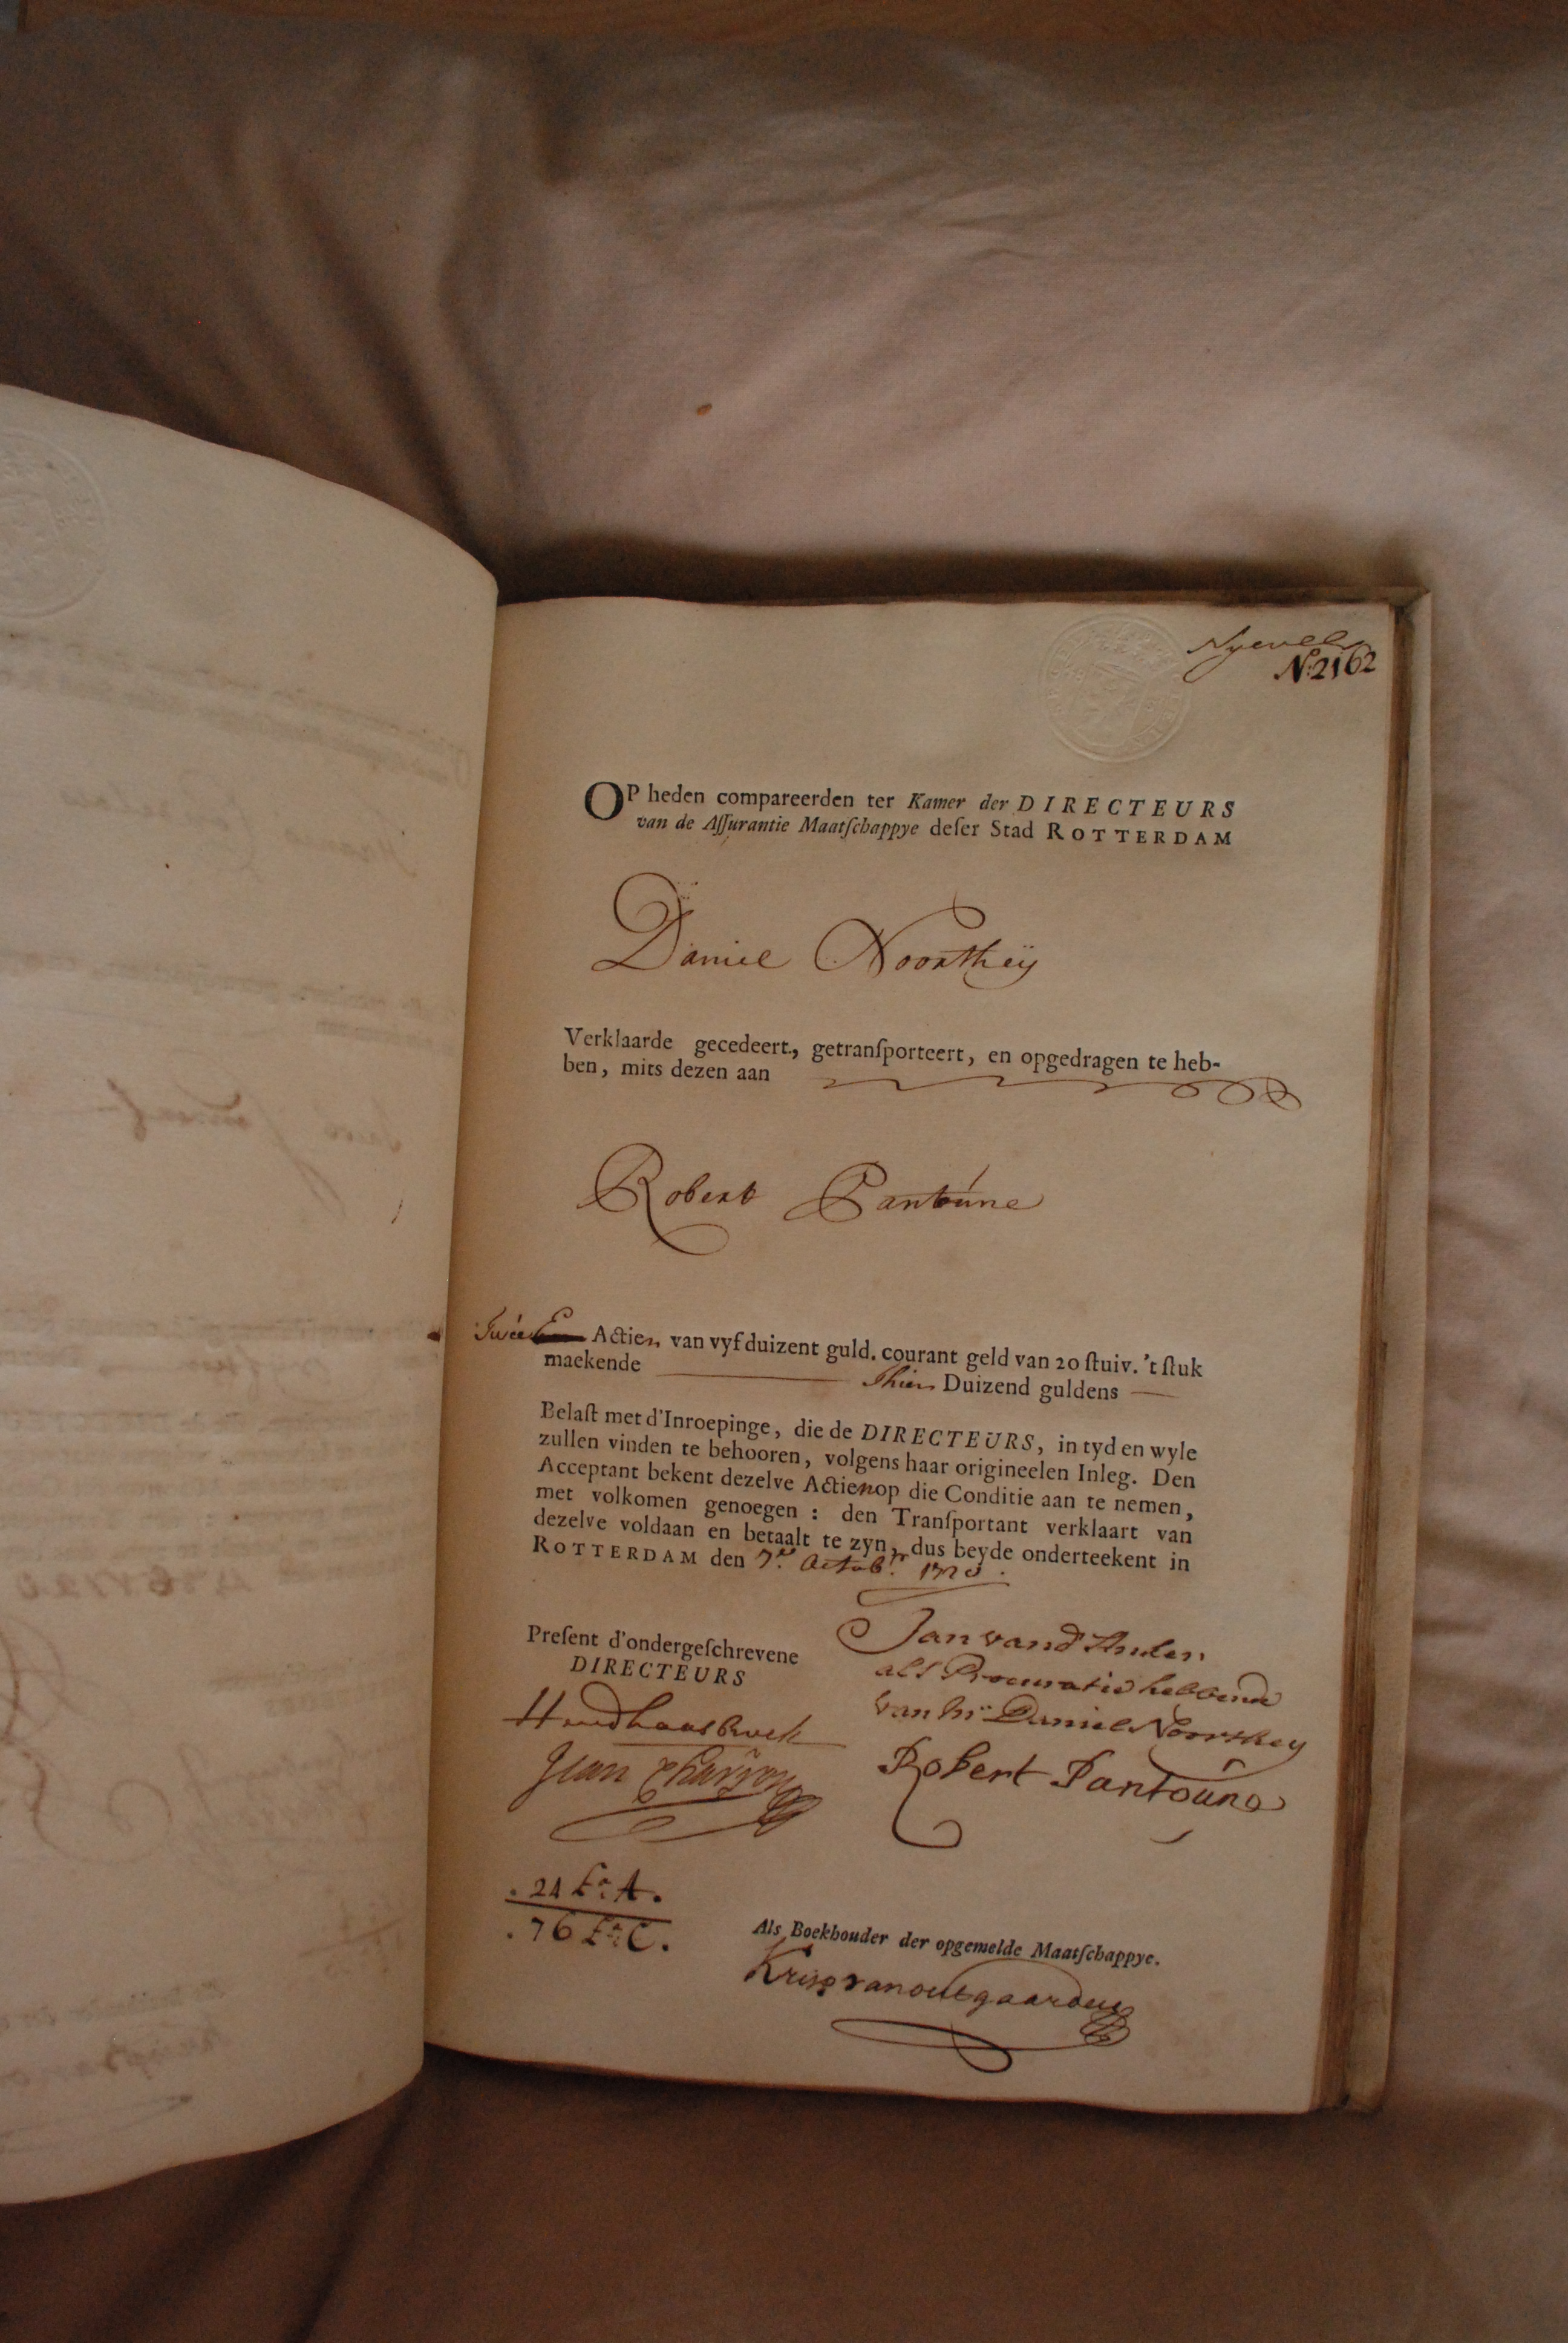 Nyevelt
Nº 2162
OP heden compareerden ter Kamer der DIRECTEURS
van de Aſſurantie Maatſchappye deſer Stad ROTTERDAM
Daniel Noortheÿ
Verklaarde gecedeert, getranſporteert, en opgedragen te heb-
ben, mits dezen aan
Robert Pantoúne
Twee Actien van vyfduizent guld. courant geld van 20 ſtuiv. 't ſtuk
maekende Thien Duizend guldens
Belaſt met d'Inroepinge, die de DIRECTEURS, in tyd en wyle
zullen vinden te behooren, volgens haar origineelen Inleg. Den
Acceptant bekent dezelve Actien op die Conditie aan te nemen,
met volkomen genoegen: den Tranſportant verklaart van
dezelve voldaan en betaalt te zyn, dus beyde onderteekent in
ROTTERDAM den 7e. Octobr. 1720.
Preſent d'ondergeſchrevene
DIRECTEURS
Jan vand
als Procuratie hebbende
van hr Daniel Noorthey
Robert Pantoúne
Jean
21 Fo. A.
76 Fo. C.
Als Boekhouder der opgemelde Maatſchappye.
Krisp van outgaarden